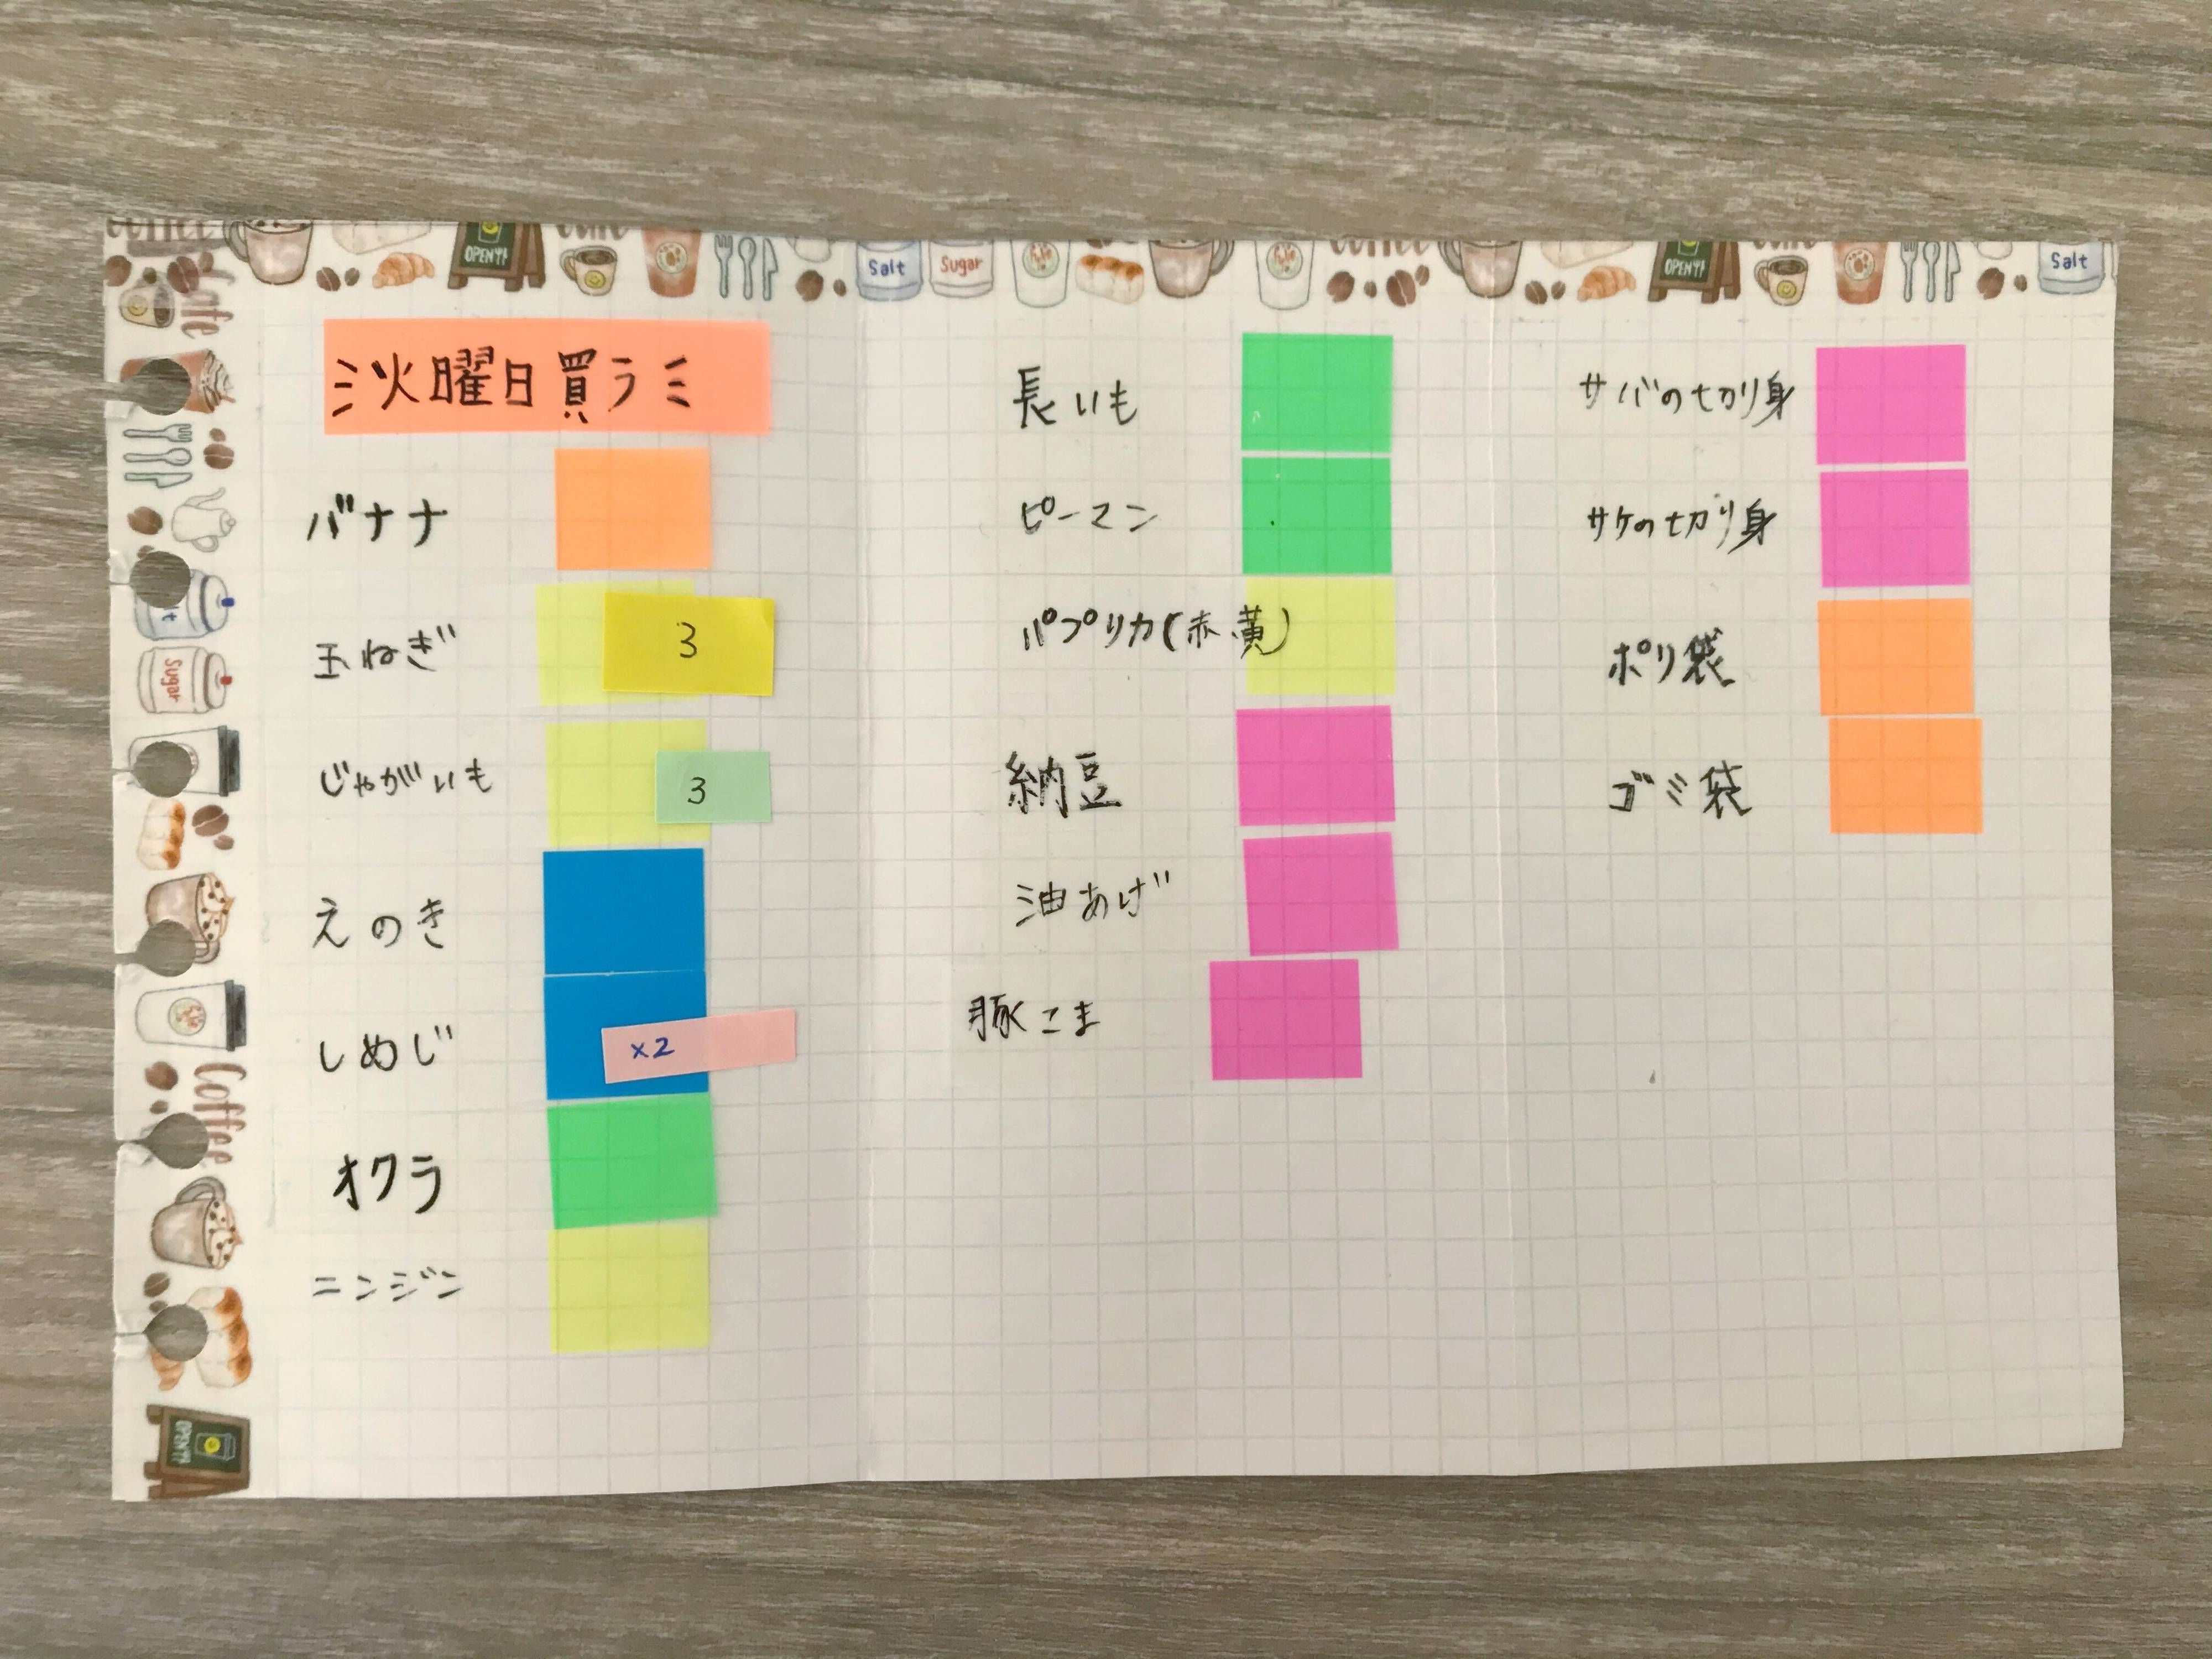 coffee
OPEN
Salt
Sugar
coffee
OPEN
Salt
Cafe
Sugar
Coffee
OPEN
火曜日買う
バナナ
玉ねぎ 3
じゃがいも 3
えのき
しめじ ×2
オクラ
ニンジン
長いも
ピーマン
パプリカ(赤、黄)
納豆
油あげ
豚こま
サバの切り身
サケの切り身
ポリ袋
ゴミ袋